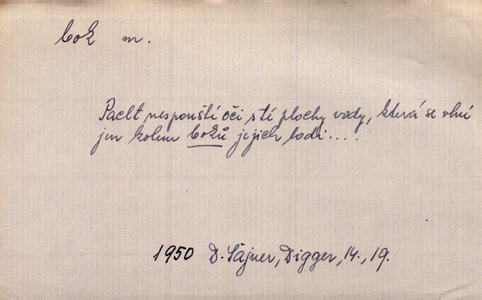 bok m.
Paelt nespouští oči s té plochy vody, která se vlní
jen kolem boků jejich lodi....
1950 D. Šajner, Digger, 14., 19.